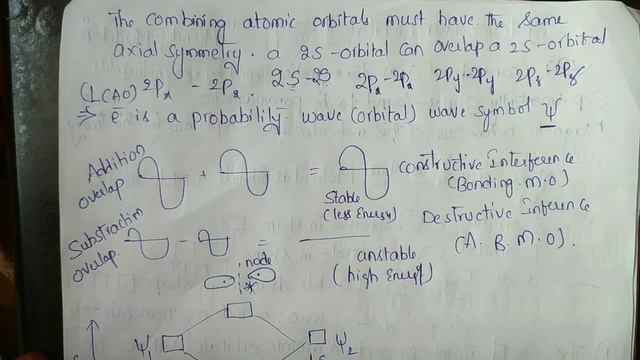 The combining atomic orbitals must have the same
axial symmetry. a 2S-orbital can overlap a 2S-orbital
(LCAO) 2Px - 2Px. 2S-2S 2Px-2Px 2Py-2Py 2Pz-2Pz
⇒ e⁻ is a probability wave (orbital) wave symbol ψ
Addition overlap + = Constructive Interference
Stable (less Energy) (Bonding.M.O)
Substraction overlap - = Destructive Inference
unstable (high Energy) (A. B. M. O).
node
ψ1 ψ2